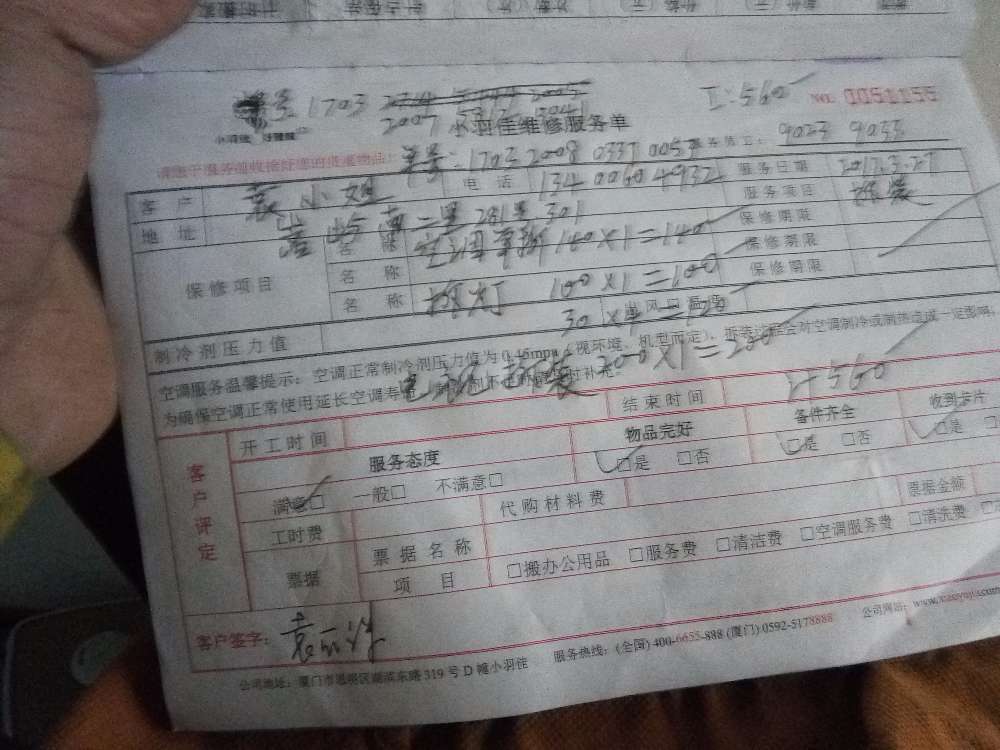 单号 1703 2007 5312 3041
I: 560
NO. 0051155
小羽佳 好健康
小羽佳维修服务单
单号: 1703 2008 0337 0057
9023 9033
客户 袁小姐 电话 134 0060 4932 服务日期 2017.3.27
地址 岩屿南二里 281号 301 服务项目 拆装
保修项目
名称 空调拿新 140×1=140 保修期限
名称 保修期限
名称 拆灯 100×1=100 保修期限
制冷剂压力值 出风口温度 30×4=120
空调服务温馨提示:空调正常制冷剂压力值为 0.45mpa(视环境、机型而定)、拆装过程会对空调制冷或制热造成一定影响,
为确保空调正常使用延长空调寿 时补充。
拆装 200×1=200
客户评定
开工时间 结束时间 I: 560
服务态度 物品完好 备件齐全 收到卡片
满意□ 一般□ 不满意□ □是 □否 □是 □否 □是 □
工时费 代购材料费
票据 票据名称 票据金额
项目 □搬办公用品 □服务费 □清洁费 □空调服务费 □清洗费
客户签字:
公司地址:厦门市思明区湖滨东路 319 号 D 幢小羽佳 服务热线:(全国) 400-6655-888 (厦门) 0592-5178888 公司网站:www.xiaoyujia.com